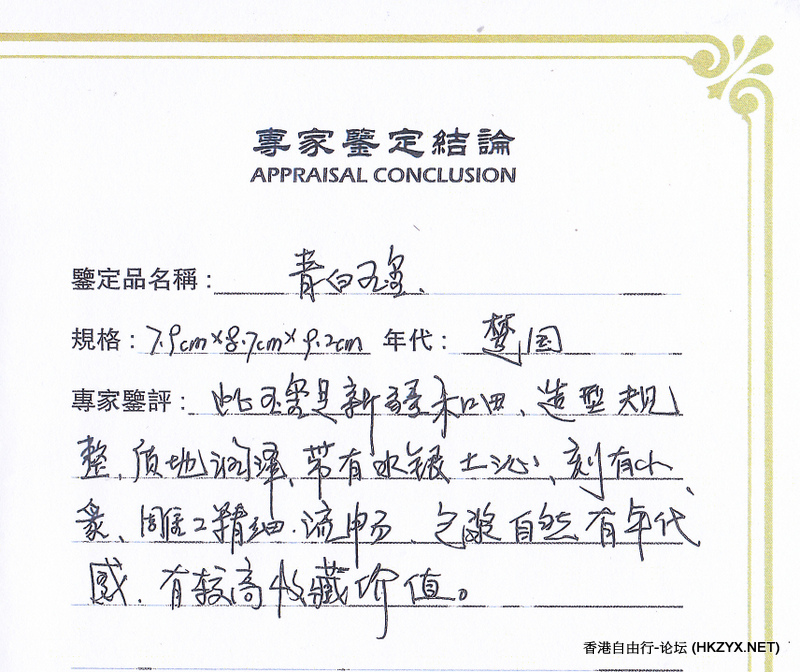 專家鑒定結論
APPRAISAL CONCLUSION
鑒定品名稱：青白玉玺.
規格：7.9cm×8.7cm×9.2cm 年代：楚国
專家鑒評：此玉玺是新疆和田、造型规
整、质地润泽、带有水银土沁、刻有
象、雕工精细.流畅、包浆自然有年代
感.有较高收藏价值。
香港自由行-论坛 (HKZYX.NET)